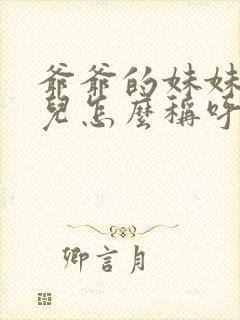 爺爺的妹妹
兒怎麼稱呼
卿言月